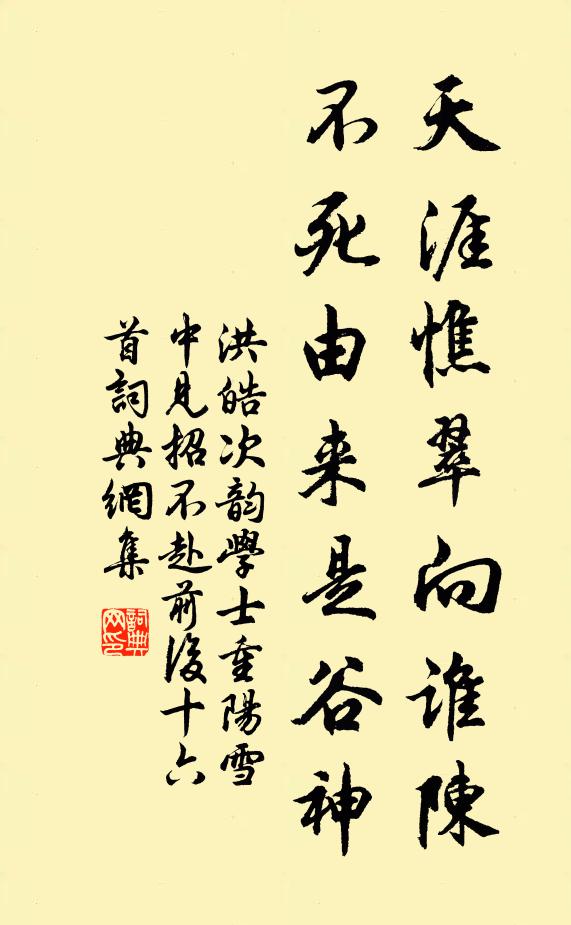 天涯憔翠向谁陳
不死由来是谷神
洪皓次韵學士重陽雪
中見招不赴前後十六
首詞典網集
詞典
网印